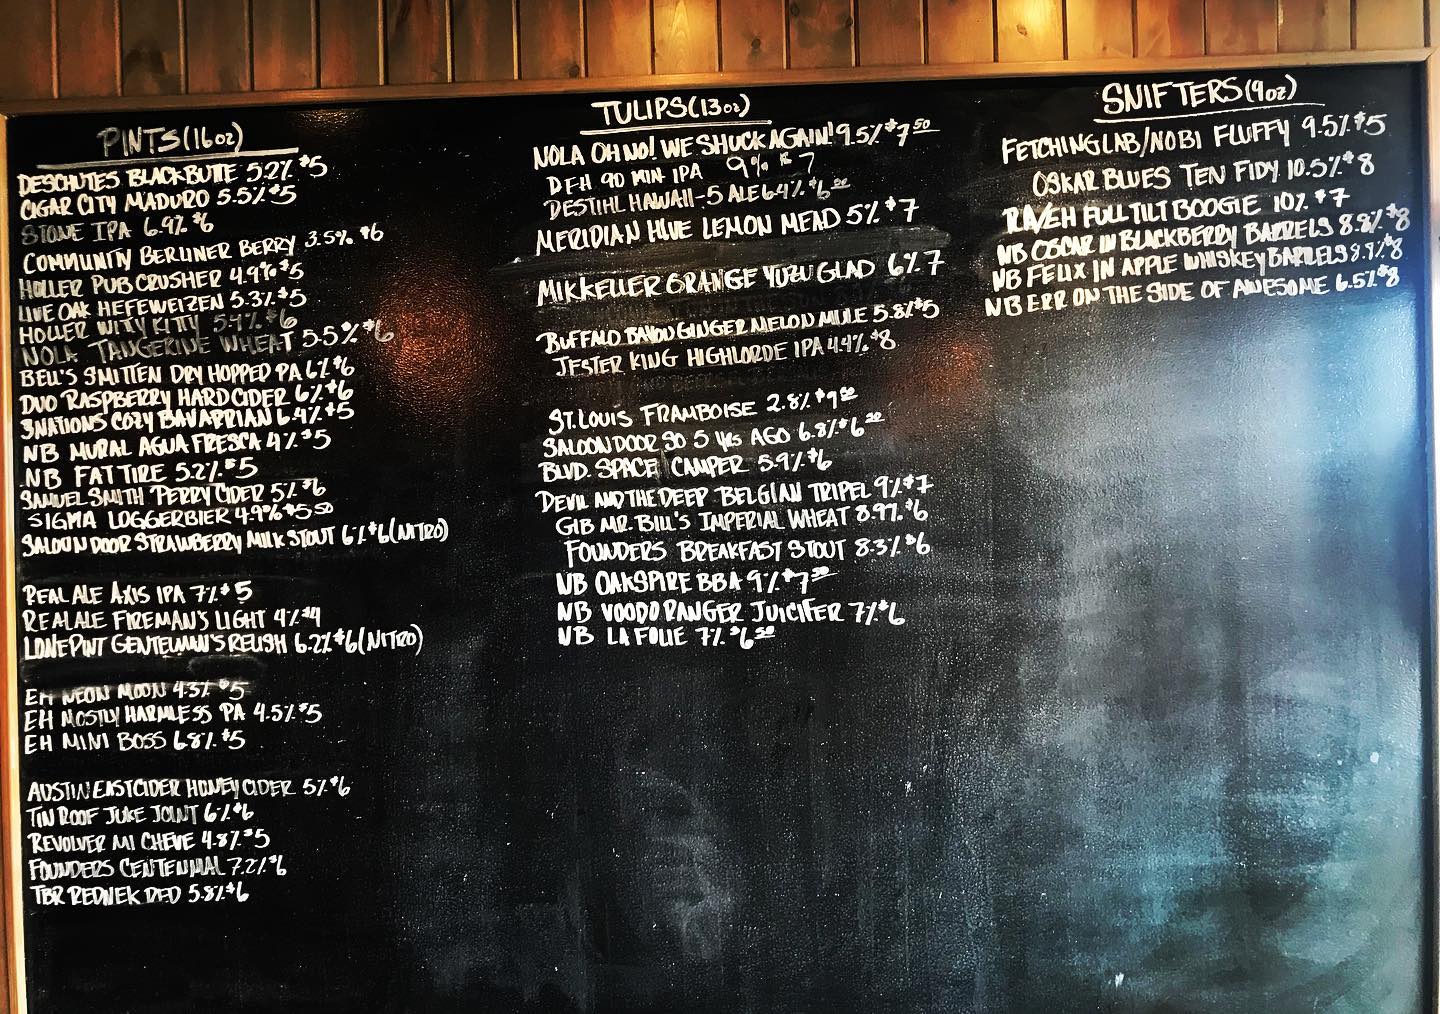 PINTS (16oz)
DESCHUTES BLACK BUTTE 5.2% $5
CIGAR CITY MADURO 5.5% $5
STONE IPA 6.9% $6
COMMUNITY BERLINER BERRY 3.5% $6
HOLLER PUB CRUSHER 4.9% $5
LIVE OAK HEFEWEIZEN 5.3% $5
HOLLER WITY KITTY 5.4% $6
NOLA TANGERINE WHEAT 5.5% $6
BELL'S SMITTEN DRY HOPPED PA 6% $6
DUO RASPBERRY HARD CIDER 6% $6
3NATIONS COZY BAVARRIAN 6.4% $5
NB MURAL AGUA FRESCA 4% $5
NB FAT TIRE 5.2% $5
SAMUEL SMITH PERRY CIDER 5% $6
SIGMA LOGGERBIER 4.9% $5 50
SALOON DOOR STRAWBERRY MILK STOUT 6% $6 (NITRO)
REAL ALE AXIS IPA 7% $5
REAL ALE FIREMAN'S LIGHT 4% $4
LONE PINT GENTELMAN'S RELISH 6.2% $6 (NITRO)
EH NEON MOON 4.3% $5
EH MOSTLY HARMLESS PA 4.5% $5
EH MINI BOSS 6.8% $5
AUSTIN EASTCIDER HONEY CIDER 5% $6
TIN ROOF JUKE JOINT 6% $6
REVOLVER MI CHEVE 4.8% $5
FOUNDERS CENTENNIAL 7.2% $6
TBR REDNEK RED 5.8% $6
TULIPS (13oz)
NOLA OH NO! WE SHUCK AGAIN! 9.5% $7 50
DFH 90 MIN IPA 9% $7
DESTIHL HAWAII-5 ALE 6.4% $6
MERIDIAN HIVE LEMON MEAD 5% $7
MIKKELLER ORANGE YUZU GLAD 6% 7
BUFFALO BAYOU GINGER MELON MULE 5.8% $5
JESTER KING HIGHLORDE IPA 4.4% $8
ST. LOUIS FRAMBOISE 2.8% $9
SALOON DOOR SO 5 YRS AGO 6.8% $6 50
BLVD. SPACE CAMPER 5.9% $6
DEVIL AND THE DEEP BELGIAN TRIPEL 9% $7
GIB MR. BILL'S IMPERIAL WHEAT 8.9% $6
FOUNDERS BREAKFAST STOUT 8.3% $6
NB OAKSPIRE BBA 9% $7 50
NB VOODO RANGER JUICIFER 7% $6
NB LA FOLIE 7% $6 50
SNIFTERS (9oz)
FETCHING LAB/NOBI FLUFFY 9.5% $5
OSKAR BLUES TEN FIDY 10.5% $8
RA/EH FULL TILT BOOGIE 10% $7
NB OSCAR IN BLACKBERRY BARRELS 8.8% $8
NB FELIX IN APPLE WHISKEY BARRELS 8.9% $8
NB ERR ON THE SIDE OF AWESOME 6.5% $8